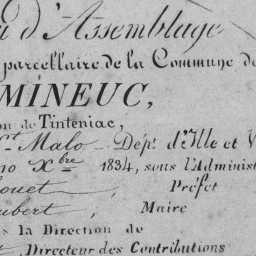 d'Assemblage
parcellaire de la Commune de
MINEUC,
on de Tinteniac,
St. Malo Dépt. d'Ille et V
no Xbre 1834, sous l'Administ
ouet, Préfet
ubert, Maire
s la Direction de
, Directeur des Contributions